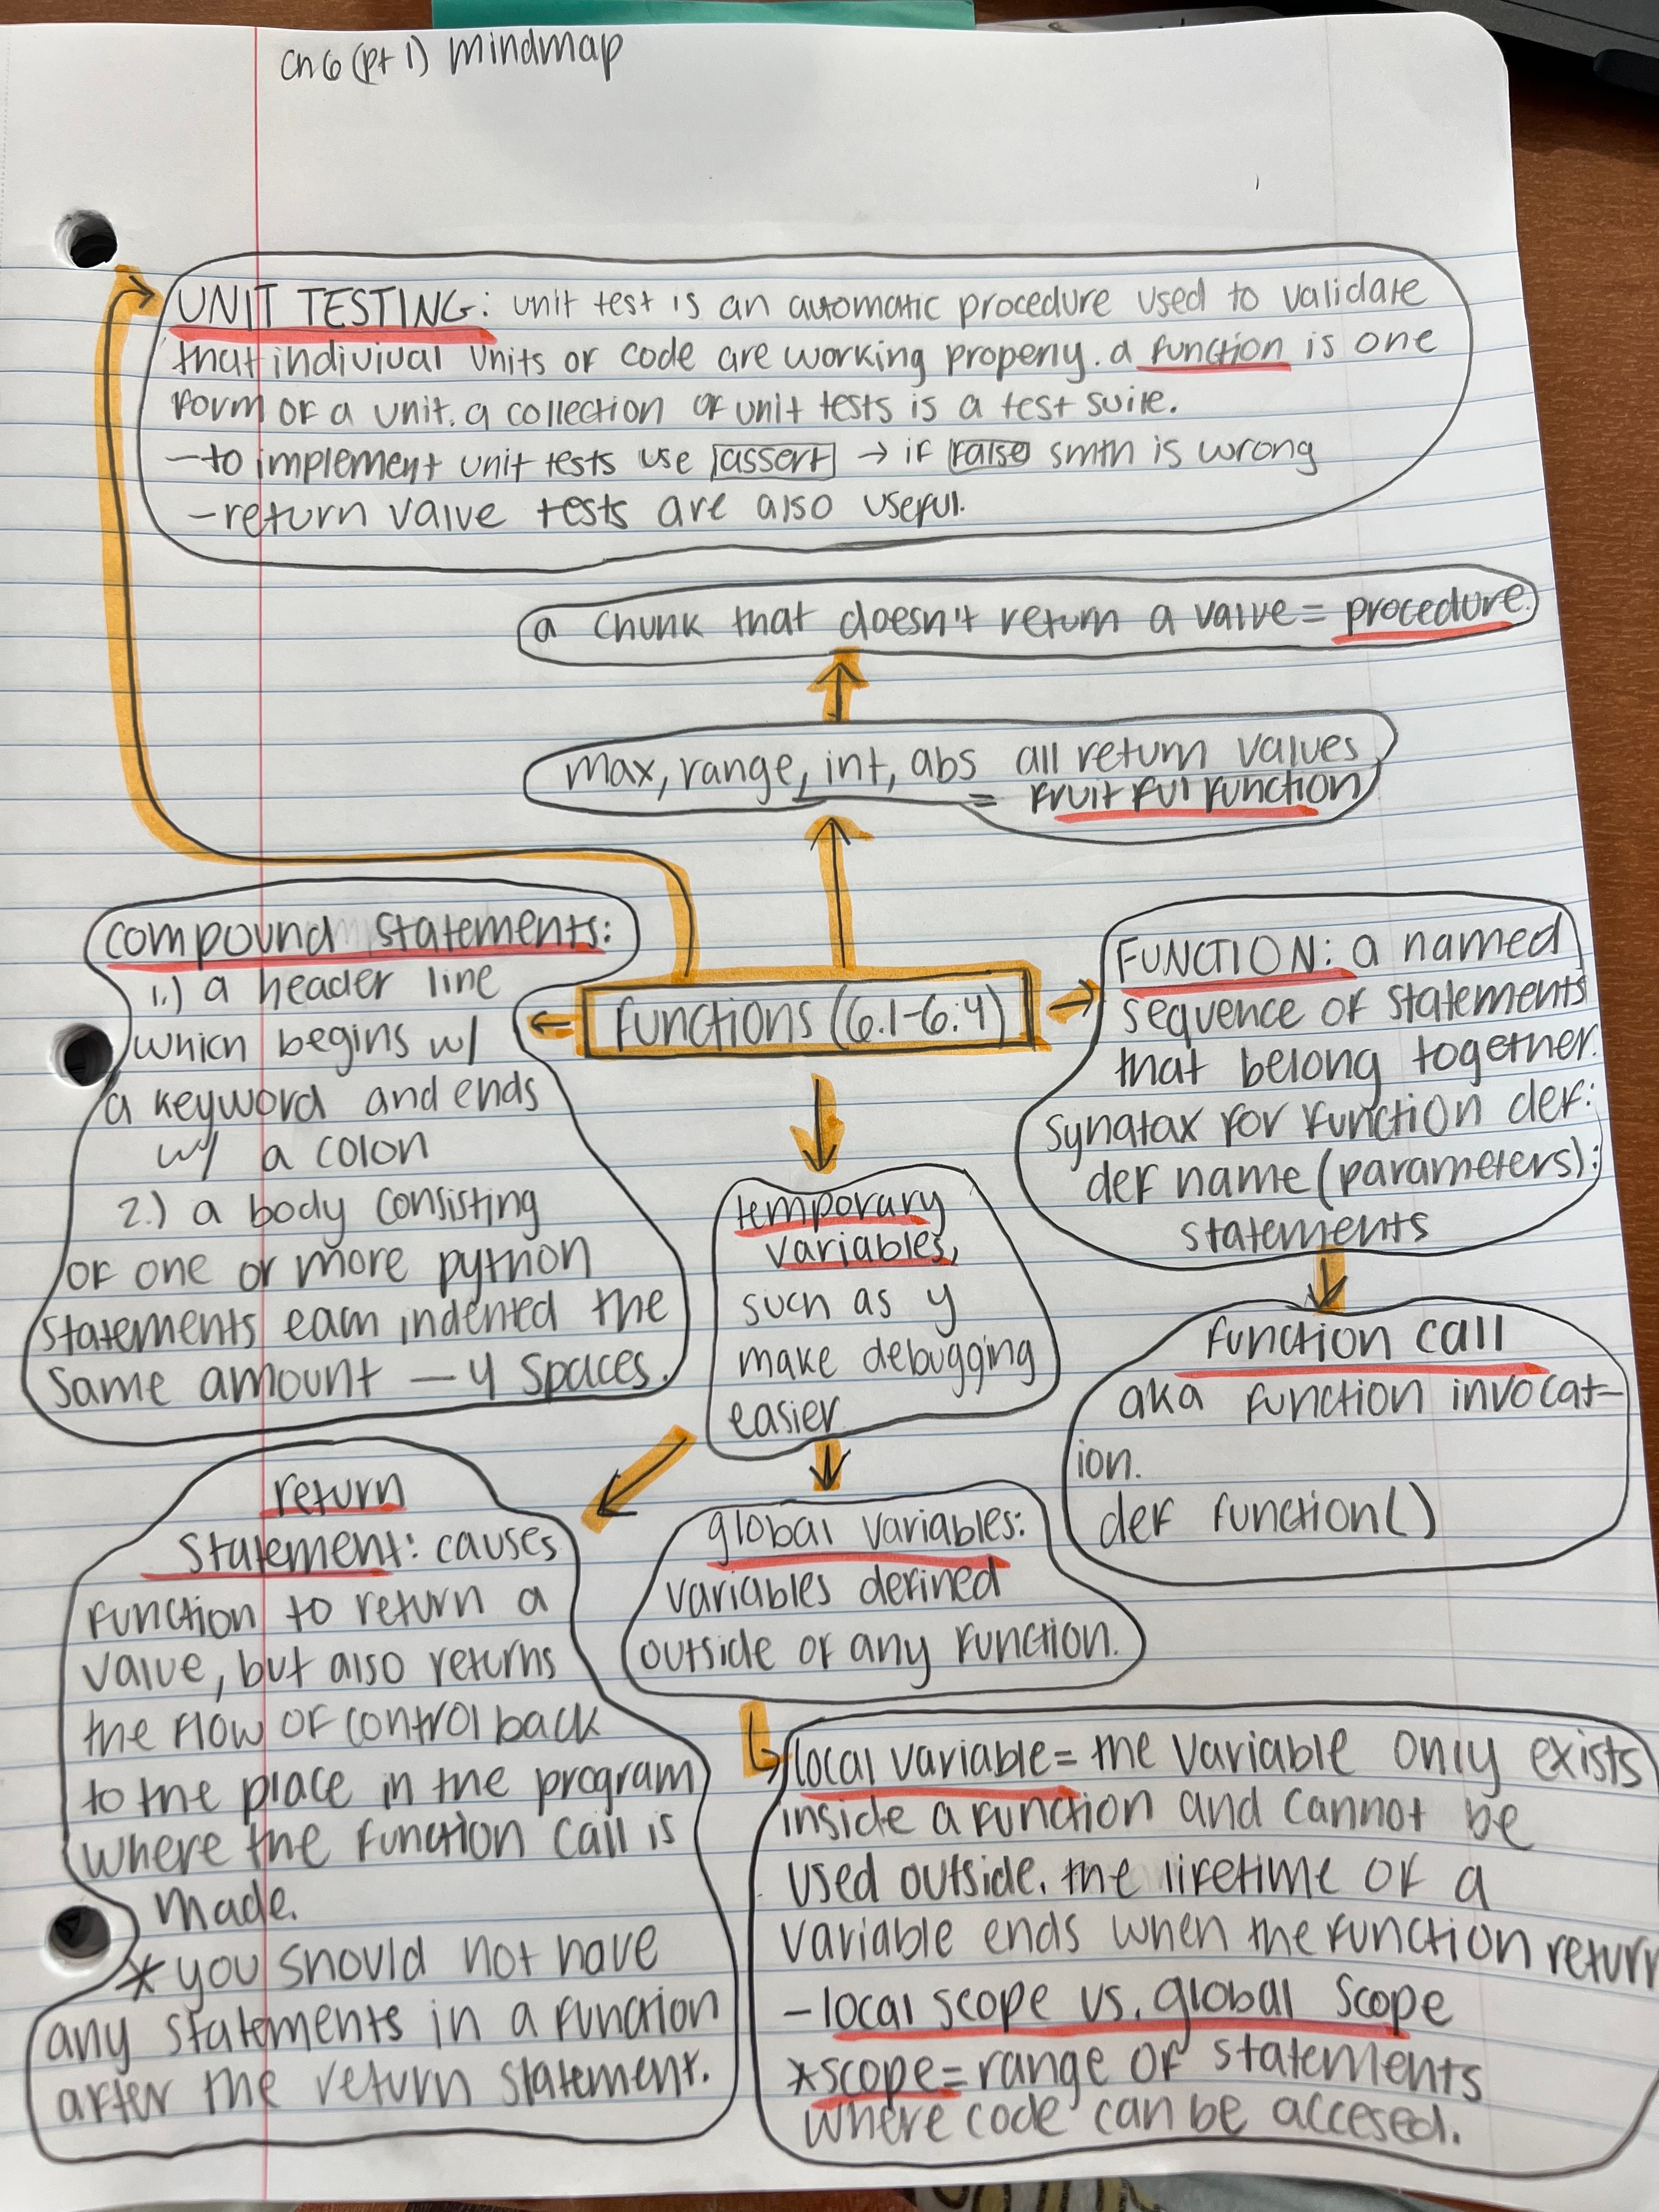 Ch 6 (pt 1) mindmap
UNIT TESTING: unit test is an automatic procedure used to validate
that indiviual units of code are working properly. a function is one
form of a unit. a collection of unit tests is a test suite.
- to implement unit tests use assert → if false smth is wrong
- return value tests are also useful.
a chunk that doesn't return a value = procedure.
max, range, int, abs all return values
= fruitful function
compound statements:
1.) a header line
which begins w/
a keyword and ends
w/ a colon
2.) a body consisting
of one or more python
statements each indented the
same amount — 4 spaces.
functions (6.1-6.4)
FUNCTION: a named
sequence of statements
that belong together.
synatax for function def:
def name (parameters):
statements
temporary
variables,
such as y
make debugging
easier
function call
aka function invocat-
ion.
def function()
return
statement: causes
function to return a
value, but also returns
the flow of control back
to the place in the program
where the function call is
made.
* you should not have
any statements in a function
after the return statement.
global variables:
variables defined
outside of any function.
local variable = the variable only exists
inside a function and cannot be
used outside. the lifetime of a
variable ends when the function return
- local scope vs. global scope
* scope = range of statements
where code can be accesed.